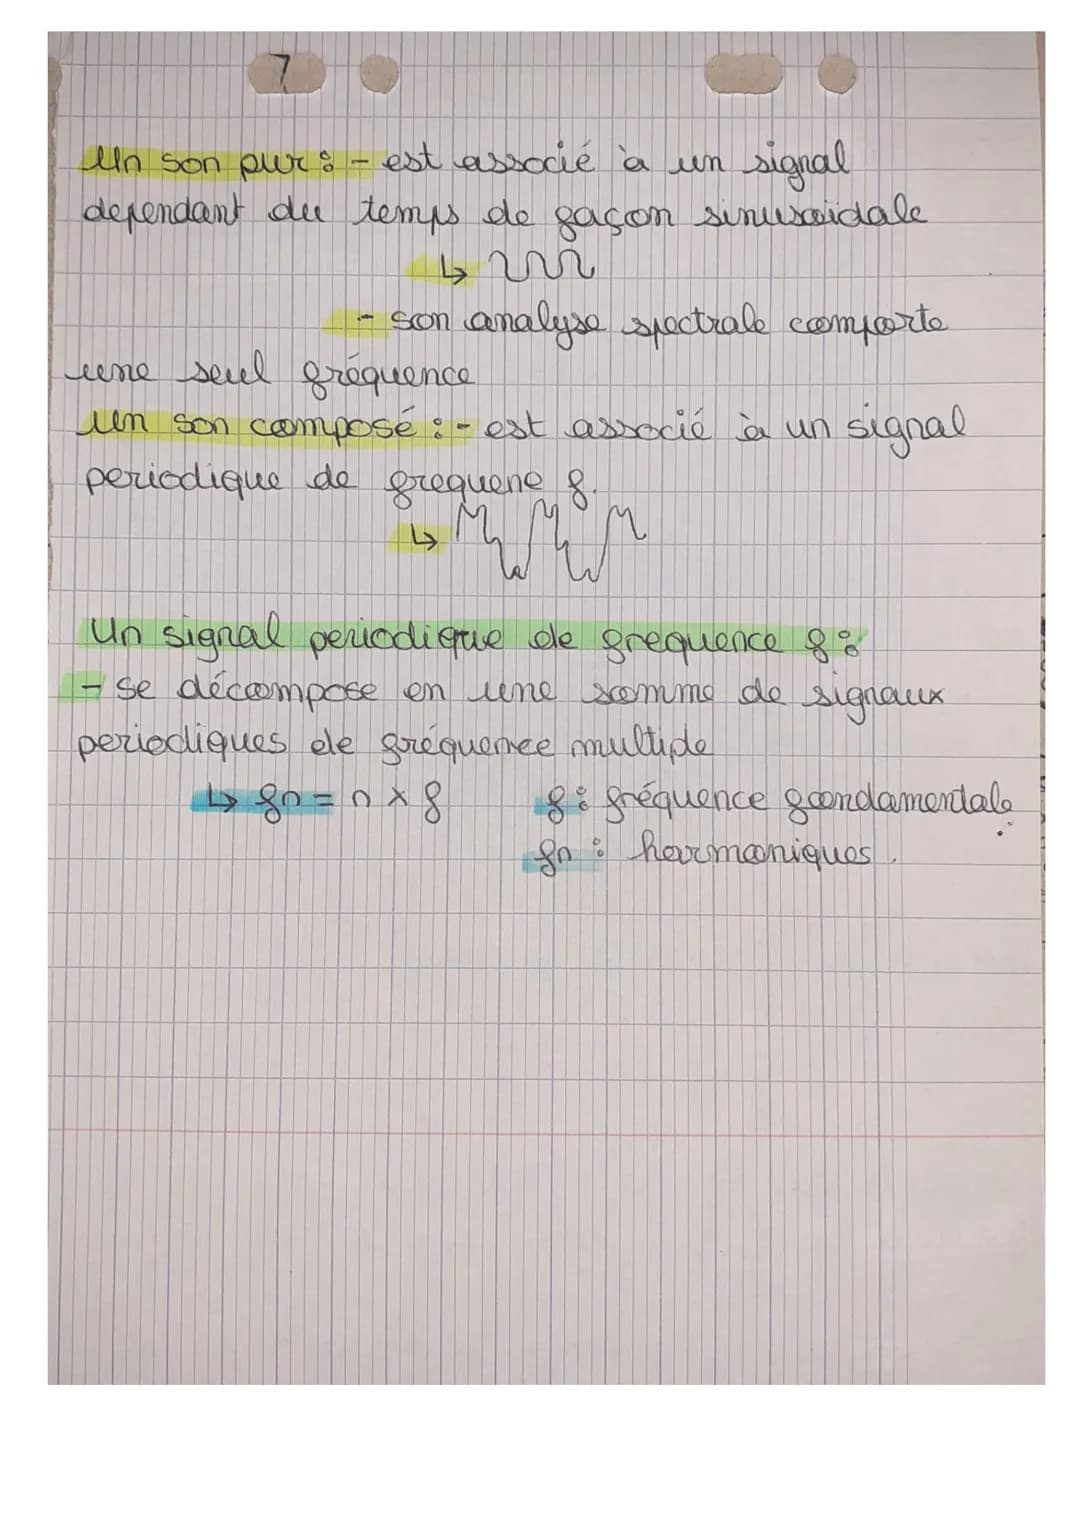 7
Un son pur : - est associé à un signal
dependant du temps de façon sinusoidale
↳
- son analyse spectrale comporte
une seul fréquence
un son composé : - est associé à un signal
periodique de frequene f.
↳
Un signal periodique de frequence f :
- se décompose en une somme de signaux
periodiques de fréquence multiple
↳ fn = n × f f : fréquence fondamentale
fn : harmoniques.